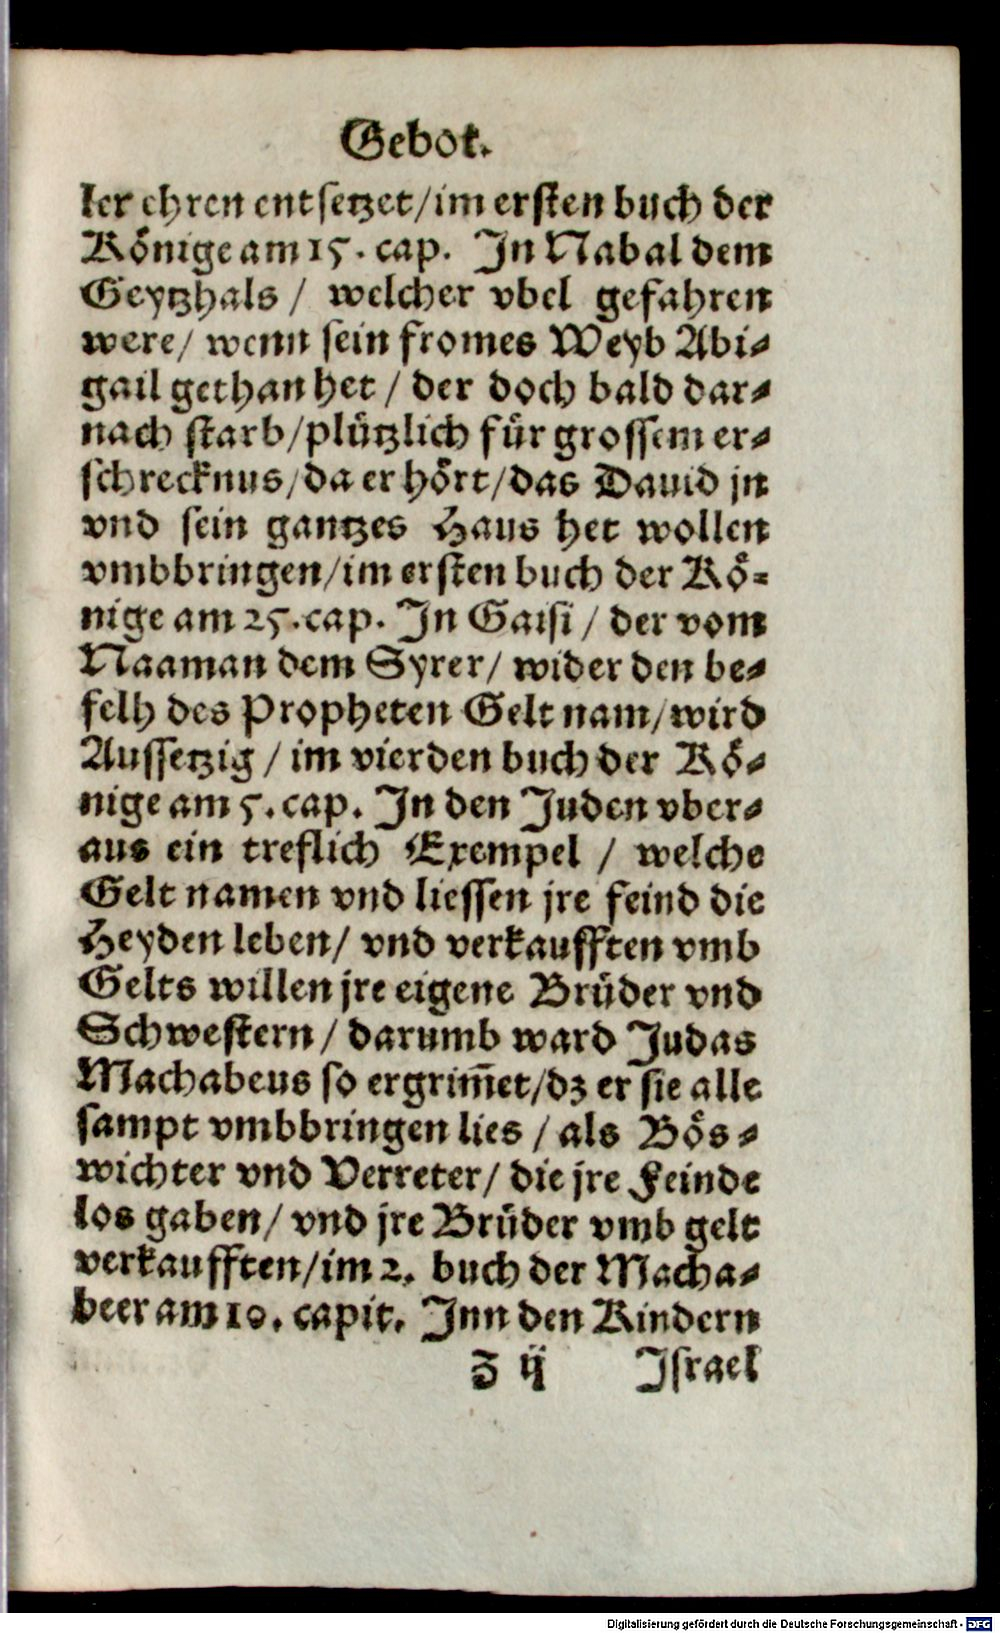 Gebot.
ler ehren entsetzet/im ersten buch der
Könige am 15. cap. In Nabal dem
Geytzhals / welcher vbel gefahren
were/ wenn sein fromes Weyb Abi⸗
gail gethan het / der doch bald dar⸗
nach starb/plützlich für grossem er⸗
schrecknus/da er hört/das Dauid jn
vnd sein gantzes Haus het wollen
vmbbringen/im ersten buch der Kö⸗
nige am 25.cap. In Gaisi / der vom
Naaman dem Syrer/ wider den be⸗
felh des Propheten Gelt nam/wird
Aussetzig / im vierden buch der Kö⸗
nige am 5. cap. In den Juden vber⸗
aus ein treflich Exempel / welche
Gelt namen vnd liessen jre feind die
Heyden leben/ vnd verkaufften vmb
Gelts willen jre eigene Brüder vnd
Schwestern / darumb ward Judas
Machabeus so ergrim̃et/dz er sie alle
sampt vmbbringen lies / als Bös⸗
wichter vnd Verreter/ die jre Feinde
los gaben/ vnd jre Brüder vmb gelt
verkaufften/im 2. buch der Macha⸗
beer am 10. capit. Inn den Kindern
Z ij Israel
Digitalisierung gefördert durch die Deutsche Forschungsgemeinschaft - DFG